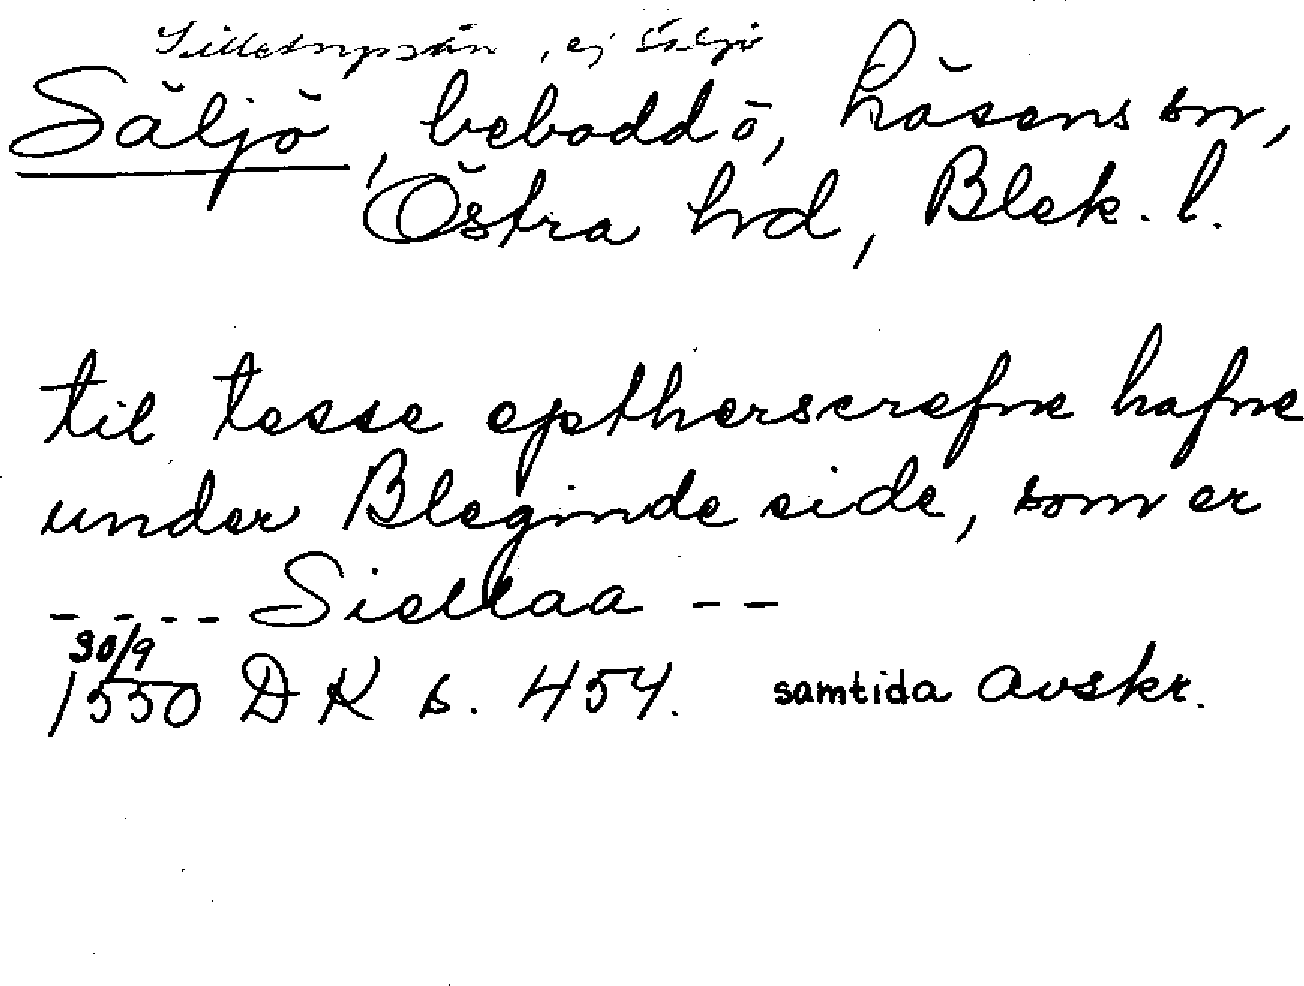 , ej Säljö
Säljö, bebodd ö, Lösens sn,
Östra hd, Blek. l.
til tesse eptherscrefne hafne
under Bleginde side, som er
---- Siellaa --
30/9
1550 DK s. 454. samtida avskr.